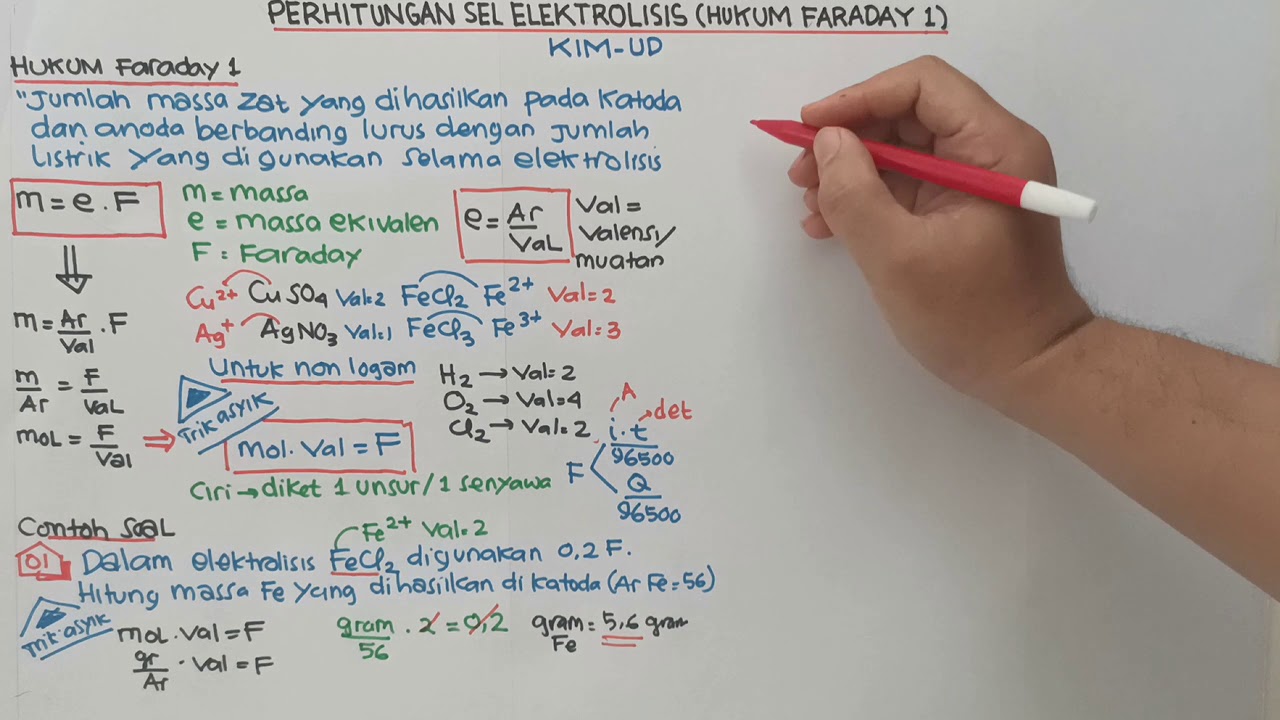 PERHITUNGAN SEL ELEKTROLISIS (HUKUM FARADAY 1)
KIM-UD
HUKUM Faraday 1
"Jumlah massa zat yang dihasilkan pada katoda
dan anoda berbanding lurus dengan jumlah
listrik yang digunakan selama elektrolisis
m = e . F
m = massa
e = massa ekivalen
F : Faraday
e = Ar/Val
Val =
valensi/
muatan
Cu2+ CuSO4 Val=2 FeCl2 Fe2+ Val=2
Ag+ AgNO3 Val=1 FeCl3 Fe3+ Val=3
m = Ar/Val . F
m/Ar = F/Val
mol = F/Val
Trik asyik
Untuk non logam
H2 → Val=2
O2 → Val=4
Cl2 → Val=2
mol. Val = F
Ciri → diket 1 unsur/1 senyawa
A
det
F
i.t/96500
Q/96500
Contoh Soal
Fe2+ Val=2
01 Dalam elektrolisis FeCl2 digunakan 0,2 F.
Hitung massa Fe yang dihasilkan di katoda (Ar Fe = 56)
Trik asyik
mol . val = F
gr/Ar . val = F
gram/56 . 2 = 0,2
gram Fe = 5,6 gram